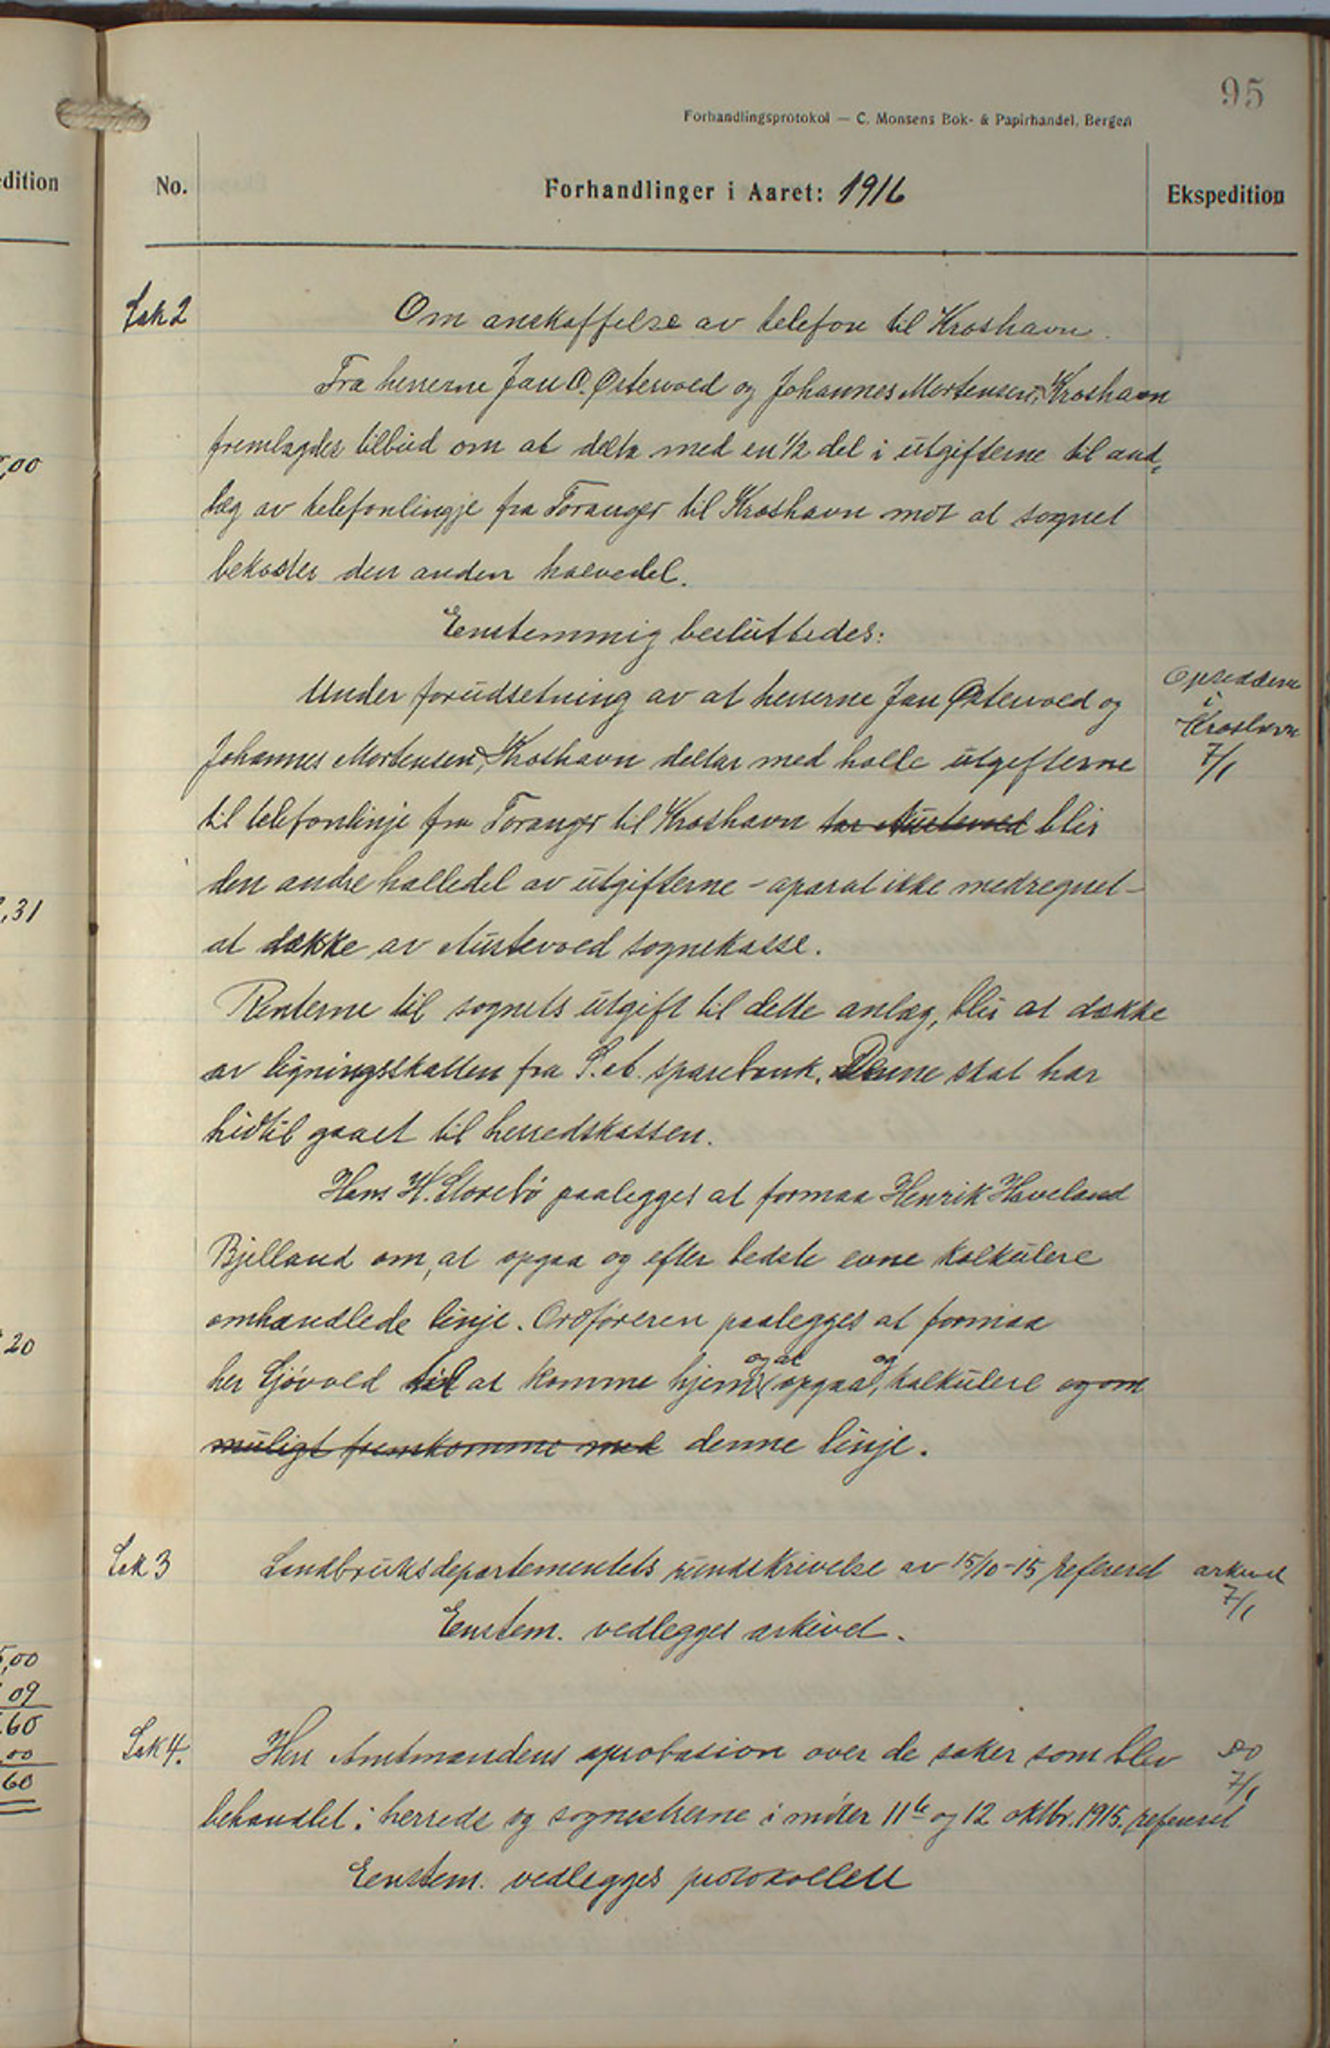 95
Forhandlingsprotokol — C. Monsens Bok- & Papirhandel, Bergen
dition
No.
Forhandlinger i Aaret: 1916
Ekspedition
Sak 2
Om anskaffelse av telefon til Kroshavn.
Fra herrerne Jan O. Østervold og Johannes Mortensen, Kroshavn
fremlagdes tilbud om at delta med en 1/2 del i utgifterne til and-
læg av telefonlingje fra Toranger til Kroshavn mot at sognet
bekoster den anden halvedel.
Enstemmig besluttedes:
Under forudsetning av at herrerne Jan Østervold og
Johannes Mortensen, Kroshavn deltar med halle utgifterne
til telefonlinje fra Toranger til Kroshavn tar Austevold blir
den andre halledel av utgifterne - aparat ikke medregnet -
at dække av Austevold sognekasse.
Renterne til sognets utgift til dette anlæg, blir at dække
av ligningsskatten fra S. A. sparebank. Denne skat har
hidtil gaaet til herredskassen.
Hans H. Storebø paalegges at formaa Henrik Haveland
Bjelland om, at opgaa og efter bedste evne kalkulere
omhandlede linje. Ordføreren paalegges at formaa
her Gjøvold til at komme hjem og at opgaa, og kalkulere og om
muligt fremkomme med denne linje.
i
Kroshavn
7/1
Sak 3
Landbruksdepartementets rundskrivelse av 15/10-15 referert
Enstem. vedlegges arkivet.
arkivet
7/1
Sak 4.
Herr Amtmandens aprobasion over de saker som blev
behandlet i herreds og sognestyrerne i møter 11te og 12 oktbr. 1915. referert
Eenstem. vedlegges protokollen
do
7/1
,00
,31
20
5,00
09
60
00
60